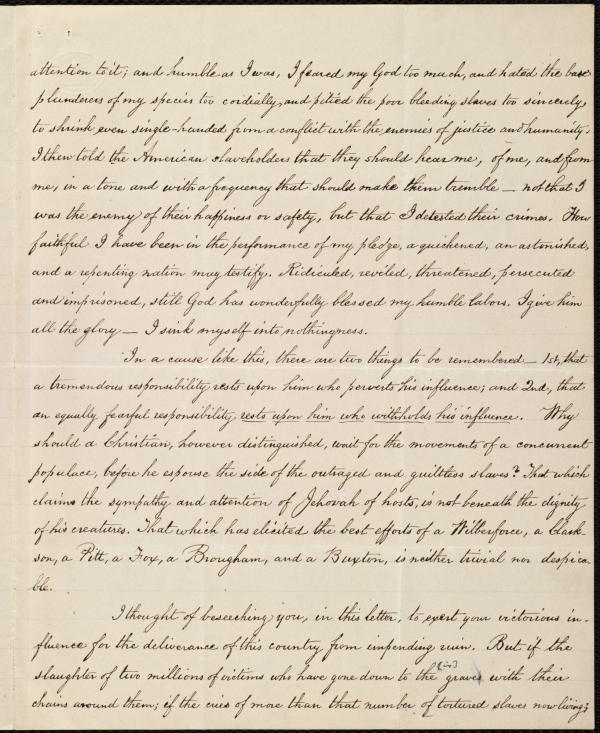 attention to it; and humble as I was, I feared my God too much, and hated the base
plunderers of my species too cordially, and pitied the poor bleeding slaves too sincerely,
to shrink even single-handed from a conflict with the enemies of justice and humanity.
I then told the American slaveholders that they should hear me, of me, and from
me, in a tone and with a frequency that should make them tremble — not that I
was the enemy of their happiness or safety, but that I detested their crimes. How
faithful I have been in the performance of my pledge, a quickened, an astonished,
and a repenting nation may testify. Ridiculed, reviled, threatened, persecuted
and imprisoned, still God has wonderfully blessed my humble labors. I give him
all the glory — I sink myself into nothingness.
In a cause like this, there are two things to be remembered — 1st, that
a tremendous responsibility rests upon him who perverts his influence; and 2nd, that
an equally fearful responsibility rests upon him who withholds his influence. Why
should a Christian, however distinguished, wait for the movements of a concurrent
populace, before he espouse the side of the outraged and guiltless slaves? That which
claims the sympathy and attention of Jehovah of hosts, is not beneath the dignity
of his creatures. That which has elicited the best efforts of a Wilberforce, a Clark-
son, a Pitt, a Fox, a Brougham, and a Buxton, is neither trivial nor despica-
ble.
I thought of beseeching you, in this letter, to exert your victorious in-
fluence for the deliverance of this country from impending ruin. But if the
[sic]
slaughter of two millions of victims who have gone down to the graves with their
chains around them; if the cries of more than that number of tortured slaves now living;